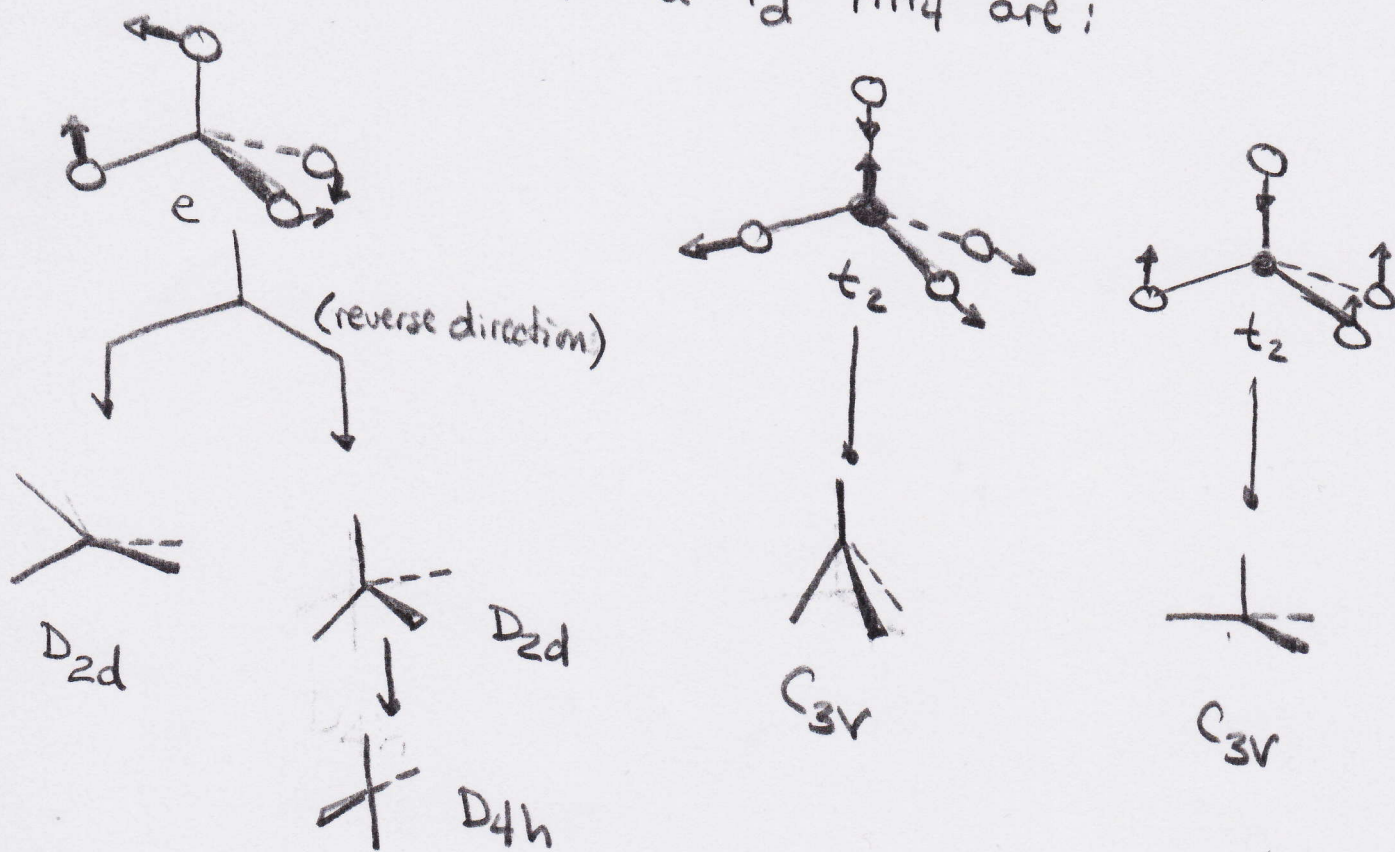 Td AH4 are:
e
(reverse direction)
t2
t2
D2d
D2d
C3v
C3v
D4h